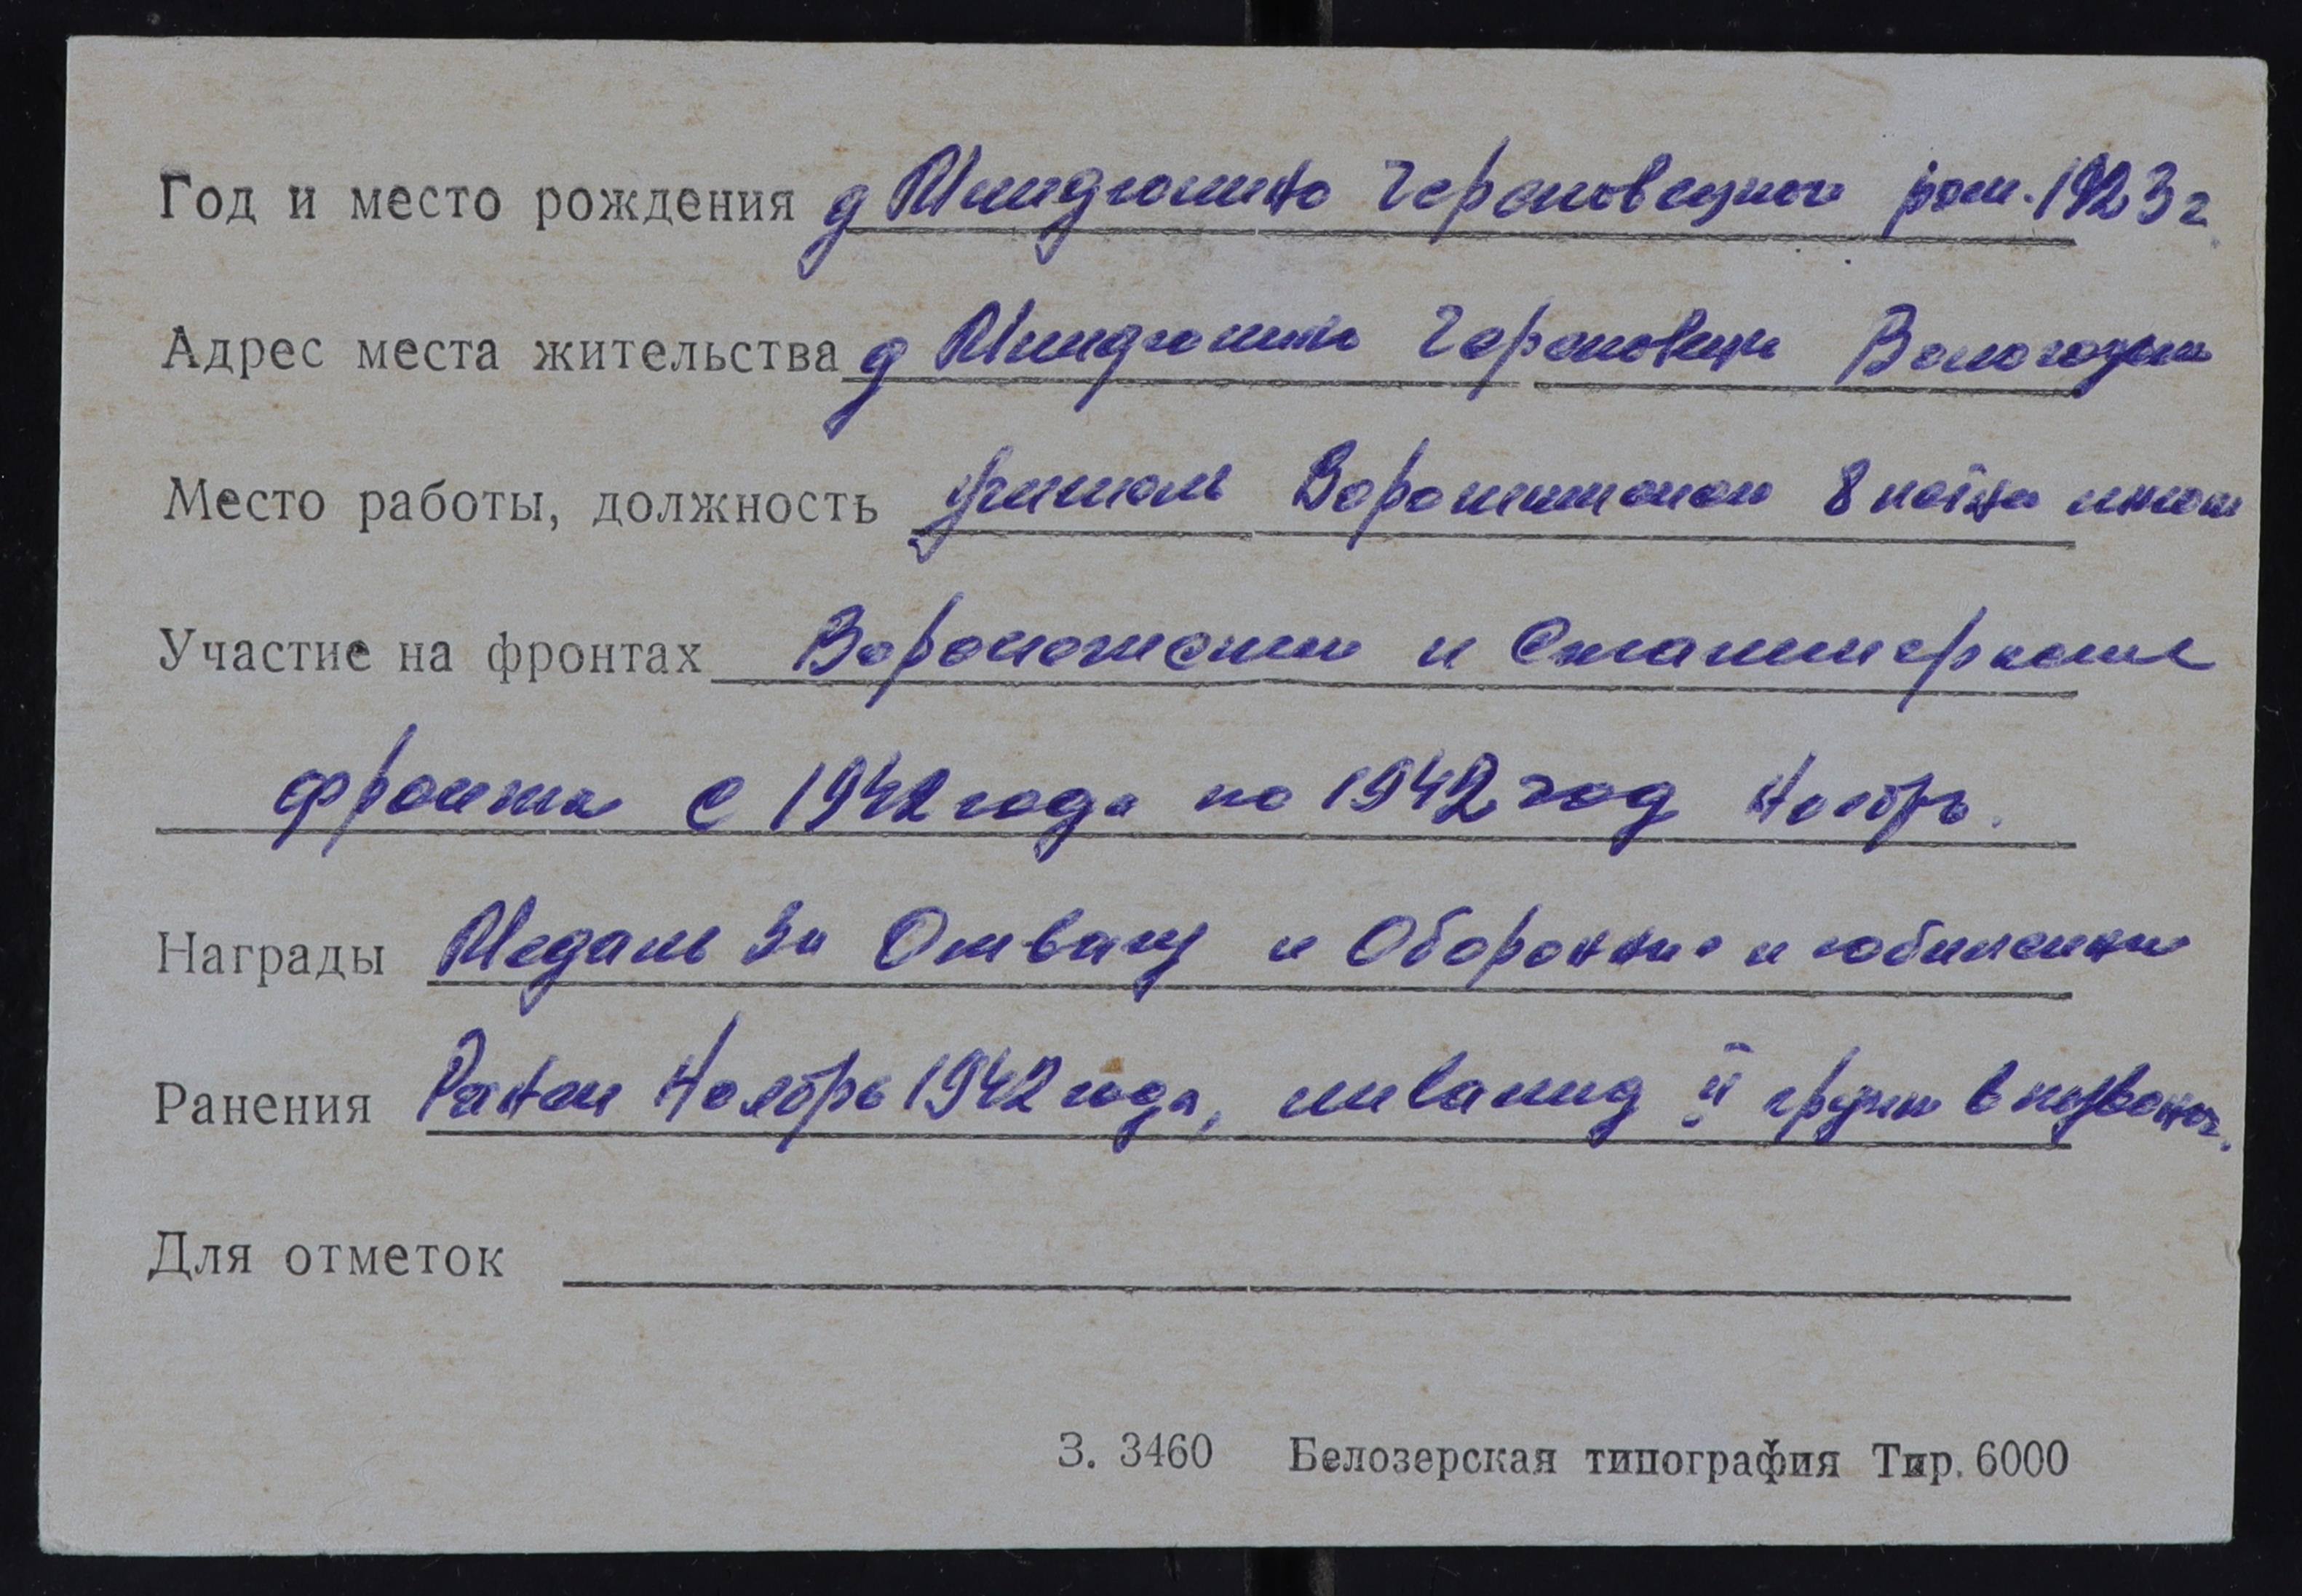 Год и место рождения д Миндюкино Череповецкого рай. 1923 г.
Адрес места жительства д Миндюкино Череповец Вологодск
Место работы, должность учитель 8 летн школ
Участие на фронтах Воронежский и Сталинград
фронта с 1942 года по 1942 год Ноябрь.
Награды Медаль За Отвагу и Оборонние и юбилейные
Ранения Ранен Ноябрь 1942 года, инвалид II групп в позвоноч.
Для отметок
З. 3460 Белозерская типография Тир. 6000